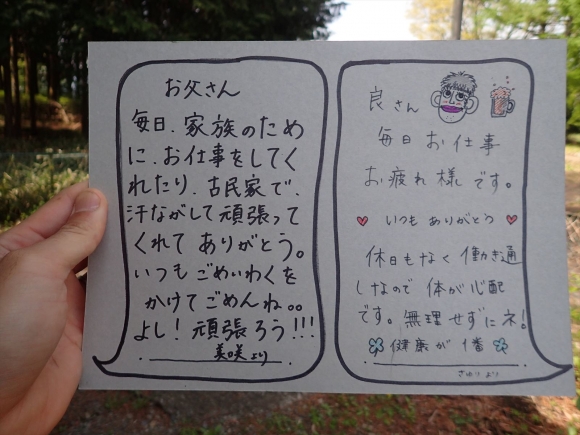 お父さん
毎日、家族のため
に、お仕事をしてく
れたり、古民家で、
汗ながして頑張って
くれて ありがとう。
いつも ごめいわくを
かけてごめんね。。
よし！頑張ろう!!!
美咲より
良さん
毎日お仕事
お疲れ様です。
いつも ありがとう
休日もなく働き通
しなので 体が心配
です。無理せずにネ!
健康が1番
さゆりより